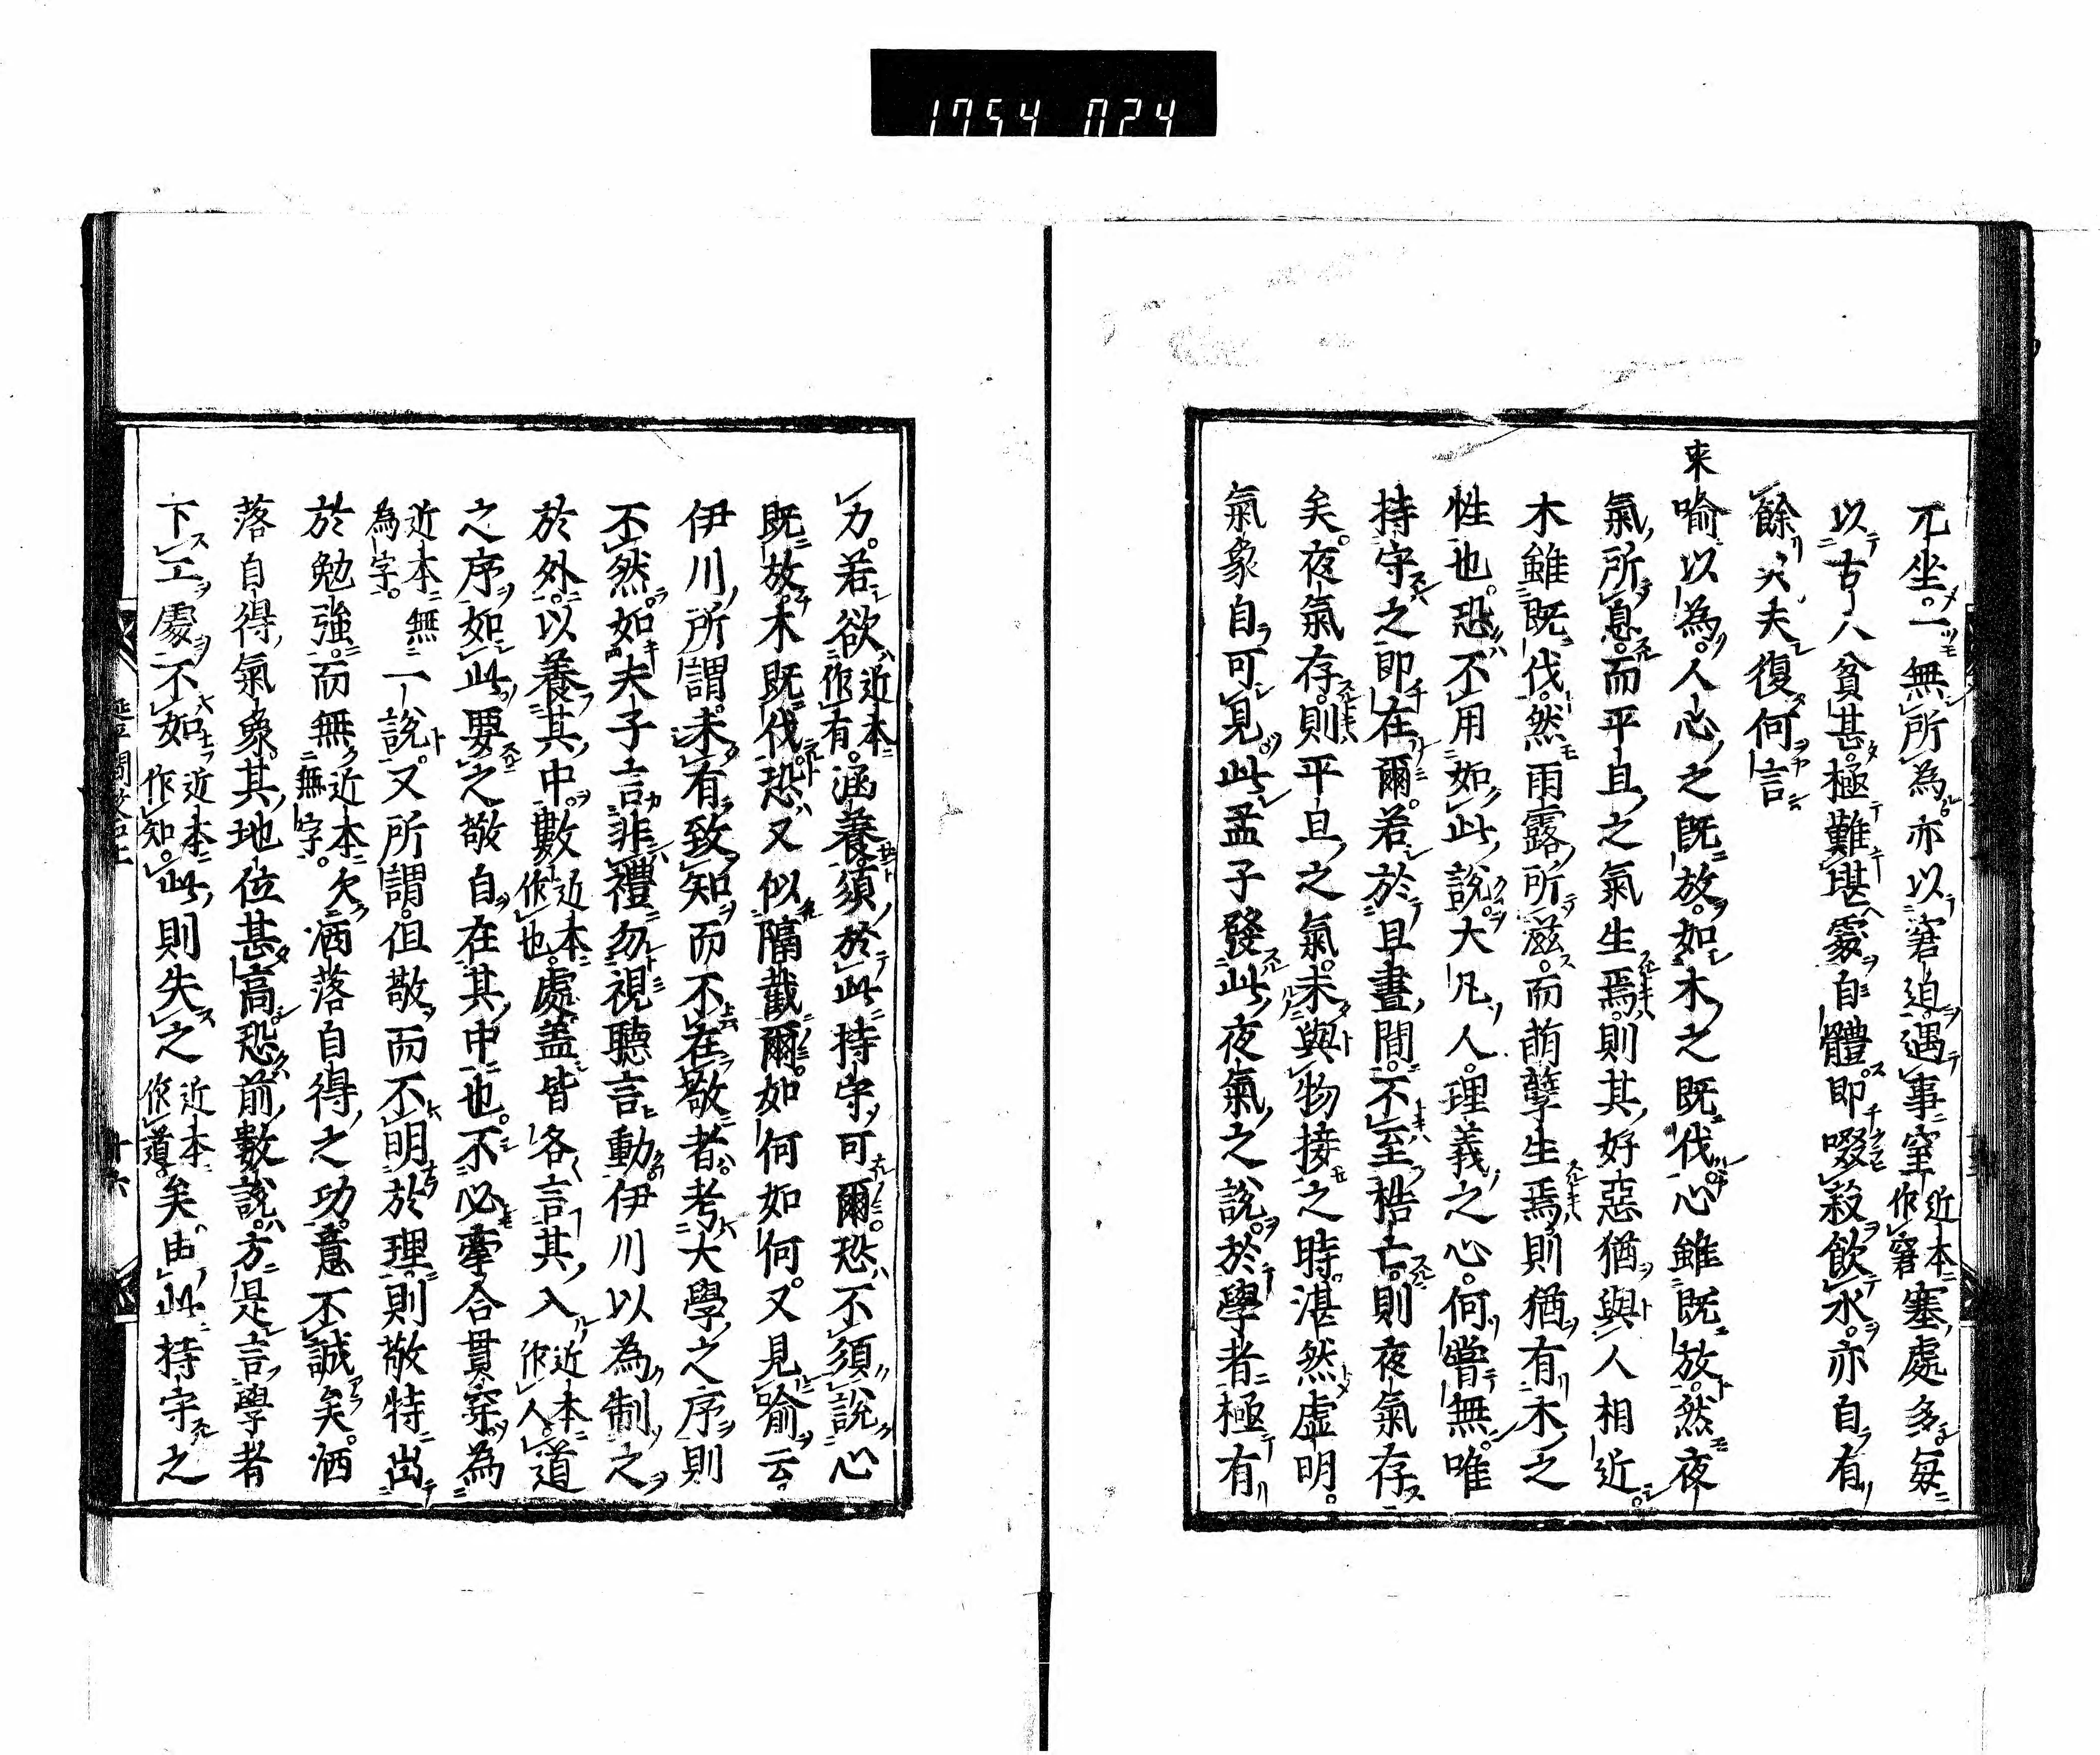 1754 024
兀坐。一無所為。亦以窘迫。遇事窒近本作窘塞處多。每
以古人貧甚。極難堪處自體。即啜菽飲水。亦自有
餘矣。夫復何言
來喻以為。人心之既放。如木之既伐。心雖既放。然夜
氣所息。而平旦之氣生焉。則其好惡猶與人相近。
木雖既伐。然雨露所滋。而萌孽生焉。則猶有木之
性也。恐不用如此說。大凡人。理義之心。何嘗無。唯
持守之即在爾。若於旦晝間。不至梏亡。則夜氣存
矣。夜氣存。則平旦之氣。未與物接之時。湛然虛明。
氣象自可見。此孟子發此夜氣之說。於學者極有
力。若欲近本作有。涵養。須於此持守可爾。恐不須說心
既放。木既伐。恐又似隔截爾。如何如何。又見喻云。
伊川所謂。未有致知而不在敬者。考大學之序則
不然。如夫子言非禮勿視聽言動。伊川以為制之
於外。以養其中。數近本作也。處。蓋皆各言其入近本作人。道
之序如此。要之敬自在其中也。不必牽合貫穿為
近本無為字。一說。又所謂。但敬而不明於理。則敬特出
於勉強。而無近本無無字。欠洒落自得之功。意不誠矣。洒
落自得氣象。其地位甚高。恐前數說。方是言學者
下工處。不如近本作知。此則失之近本作道。矣。由此持守之
十六